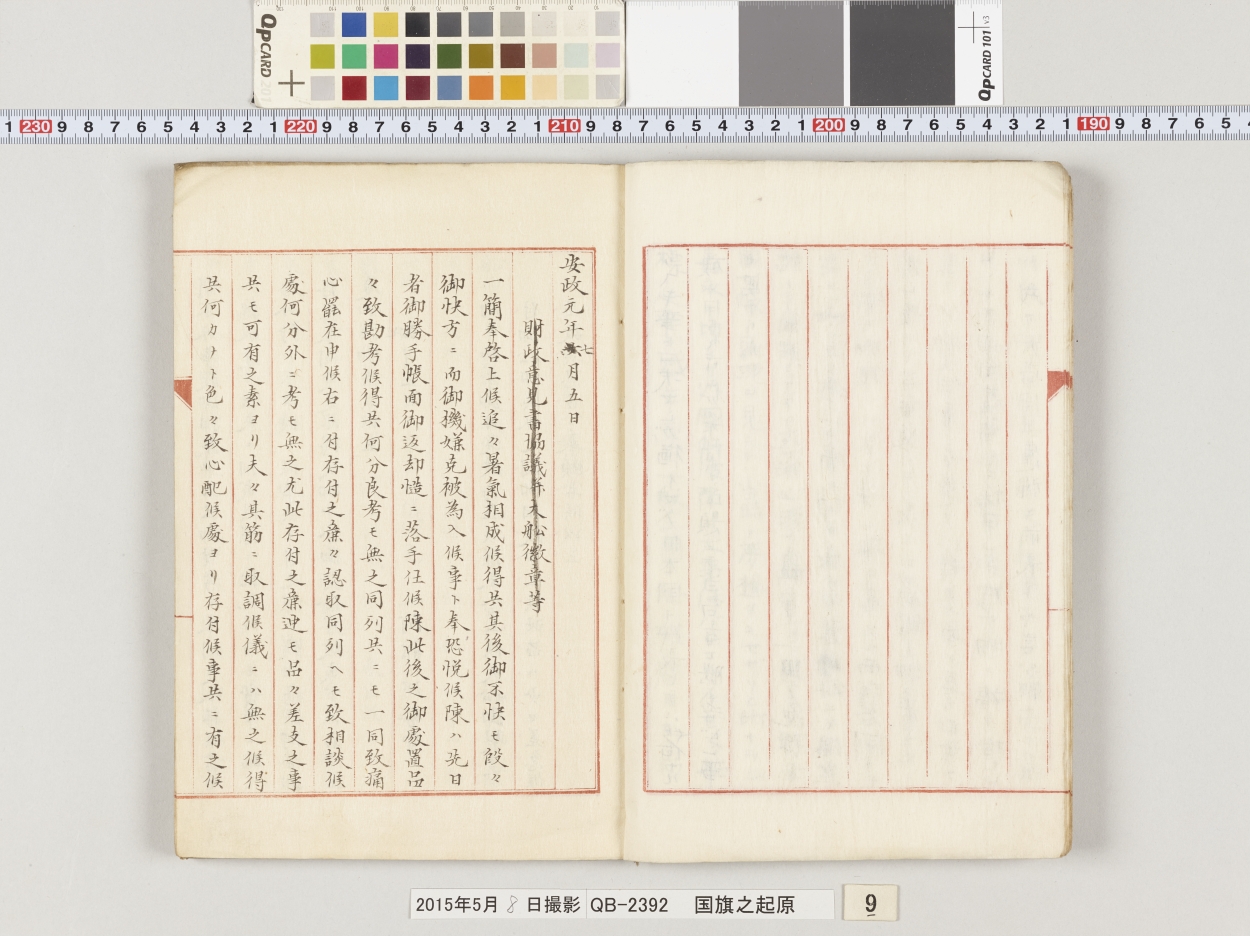 QPCARD 201
QPCARD 101 v3
1 230 9 8 7 6 5 4 3 2 1 220 9 8 7 6 5 4 3 2 1 210 9 8 7 6 5 4 3 2 1 200 9 8 7 6 5 4 3 2 1 190 9 8 7 6 5
安政元年六七月五日
財政意見書協議并大舩徽章等
一簡奉啓上候追々暑氣相成候得共其後御不快モ段々
御快方ニ而御機嫌克被為入候事ト奉恐悦候陳ハ先日
者御勝手帳面御返却慥ニ落手仕候陳此後之御處置呂
々致勘考候得共何分良考モ無之同列共ニモ一同致痛
心罷在申候右ニ付存付之廉々認取同列ヘモ致相談候
處何分外ニ考モ無之尤此存付之廉迚モ呂々差支之事
共モ可有之素ヨリ夫々其筋ニ取調候儀ニハ無之候得
共何カナト色々致心配候處ヨリ存付候事共ニ有之候
2015年5月8日撮影 QB-2392 国旗之起原
9